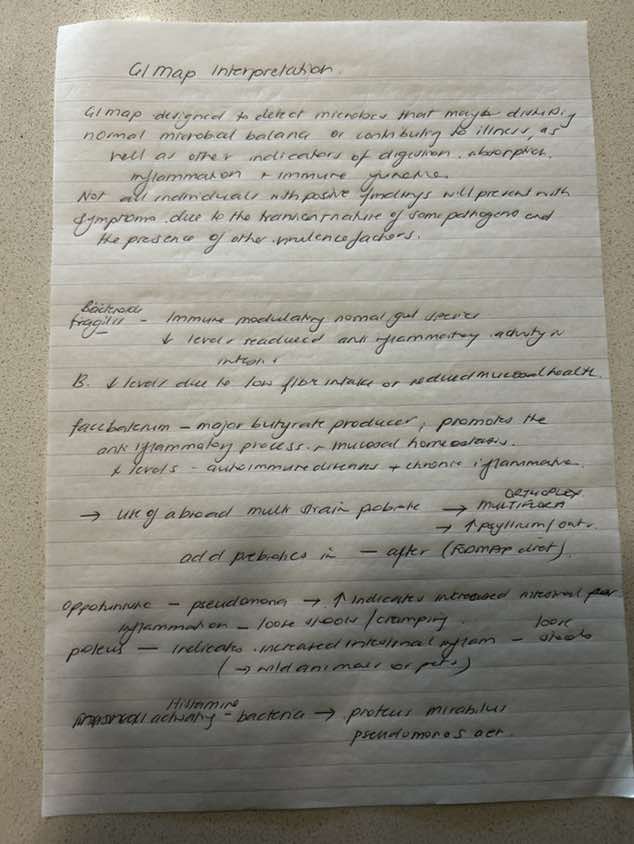 GI map Interpretation.
GI map designed to detect microbes that maybe disturbing
normal microbial balance or contributing to illness, as
well as other indicators of digestion, absorption,
inflammation + immune function.
Not all individuals with positive findings will present with
symptoms due to the transient nature of some pathogens and
the presence of other virulence factors.
Bacteroides
fragilis - Immune modulating normal gut species
↓ levels reduced anti inflammatory activity in
B. ↓ levels due to low fibre intake or reduced mucosal health.
faecbaterium - major butyrate producer, promotes the
anti inflammatory process + mucosal homeostasis.
↓ levels - autoimmune diseases + chronic inflammation.
→ use of a broad multi strain probiotic → ORTHOPLEX MULTIFLORA
→ ↑ psyllium / oats.
add prebiotics in — after (FODMAP diet).
Opportunistic - pseudomona → ↑ indicates increased intestinal
inflammation - loose stools / cramping.
proteus — indicates increased intestinal inflam - loose stools
(→ wild animals or pets)
Histamine
activating - bacteria → proteus mirabilus
pseudomonas aer.